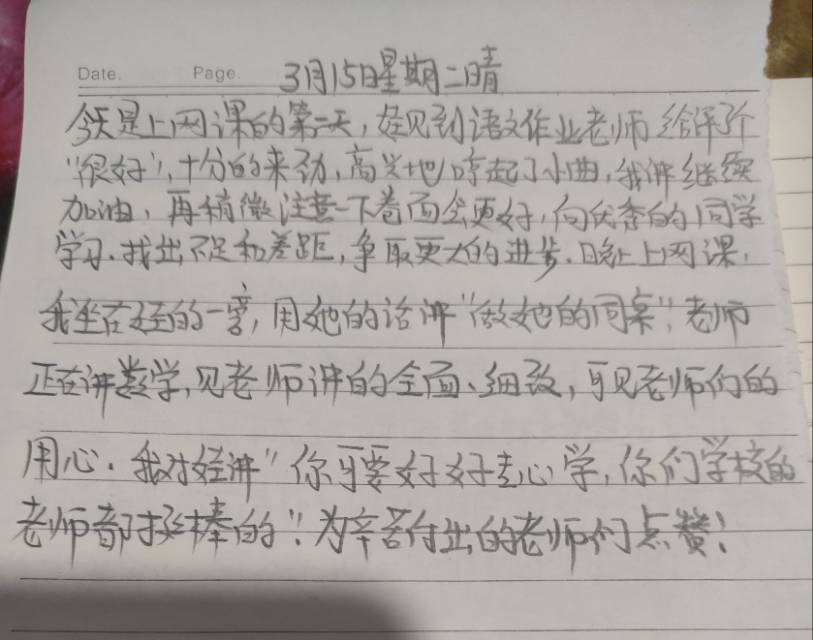 Date. Page. 3月15日星期二晴
今天是上网课的第一天,侄见到语文作业老师给评个
"很好",十分的来劲,高兴地哼起了小曲,我讲继续
加油,再稍微注意一下卷面会更好,向优秀的同学
学习.找出不足和差距,争取更大的进步.晚上上网课,
我坐在侄的一旁,用她的话讲"做她的同桌",老师
正在讲数学,见老师讲的全面、细致,可见老师们的
用心.我对侄讲"你可要好好走心学,你们学校的
老师都挺棒的".为辛苦付出的老师们点赞!